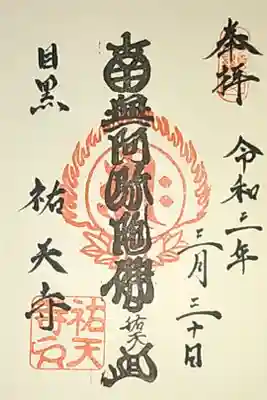 奉拝
令和二年
三月三十日
南無阿弥陀佛
祐天
目黒
祐天寺
祐天
寺印